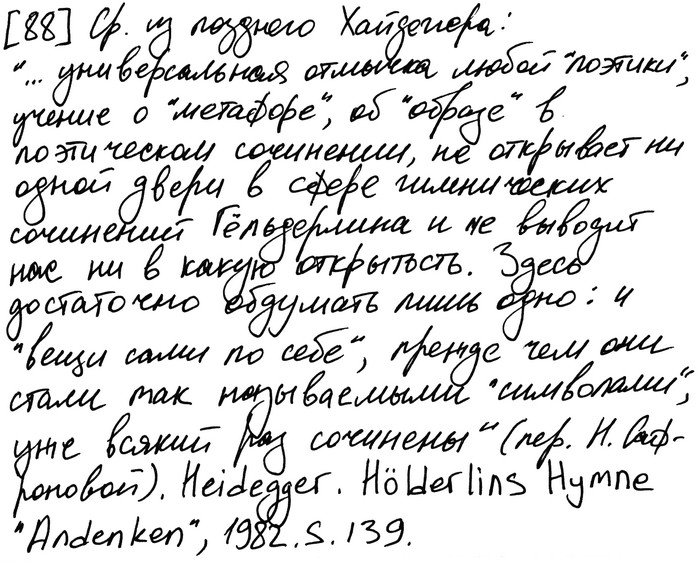 [88] Ср. из позднего Хайдеггера:
"... универсальная отмычка любой "поэтики",
учение о "метафоре", об "образе" в
поэтическом сочинении, не открывает ни
одной двери в сфере гимнических
сочинений Гёльдерлина и не выводит
нас ни в какую открытость. Здесь
достаточно обдумать лишь одно: и
"вещи сами по себе", прежде чем они
стали так называемыми "символами",
уже всякий раз сочинены" (пер. Н. Саф-
роновой). Heidegger. Hölderlins Hymne
"Andenken", 1982. S. 139.